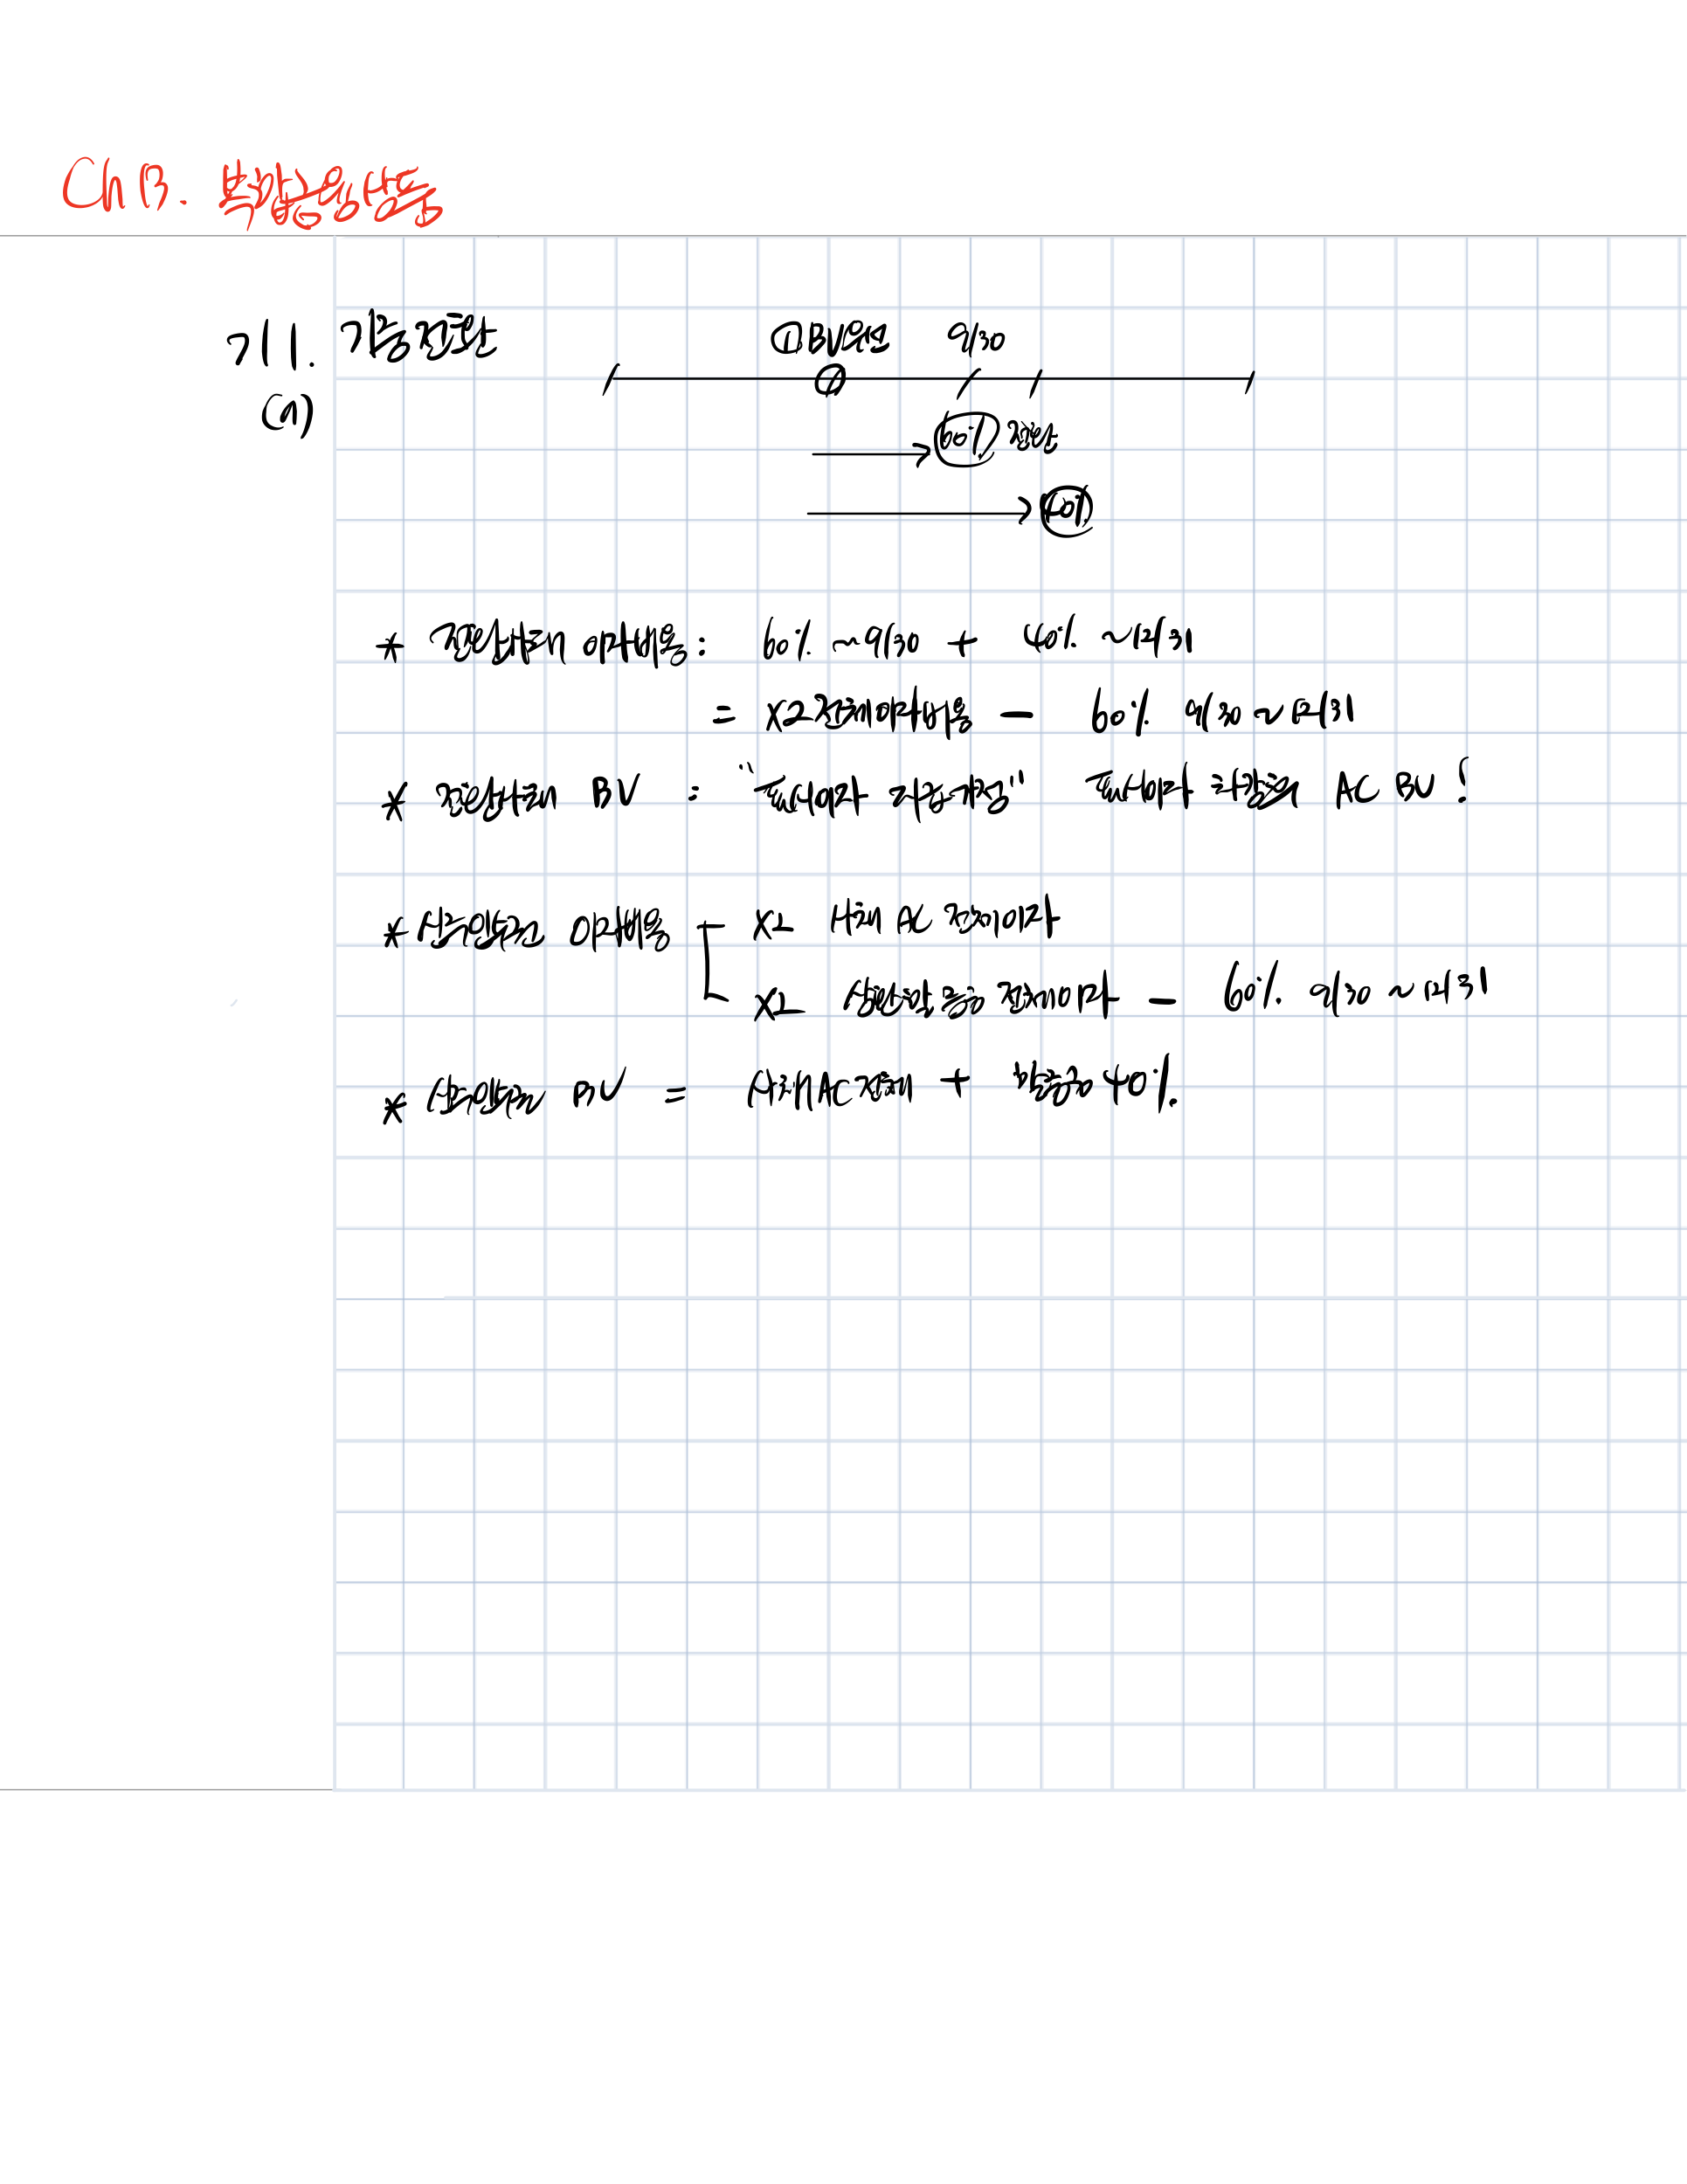 Ch 13. 복합금융상품
기 1. 기중전환
(1)
① BV우선 9/30
60% 전환
40%
* 전환사채 이자비용 : 60% ~9/30 + 40% ~12/31
= X2 전체이자비용 - 60% 9/30 ~ 12/31
* 전환사채 BV : "표시이자 지급가정" 표시이자 차감후의 AC BV !
* 신주인수권 이자비용 X2 사채 AC 전체이자
X2 상환할증금 전체이자 - 60% 9/30 ~ 12/31
* 신주인수권 BV = 사채AC 전체 + 할증금 40%.